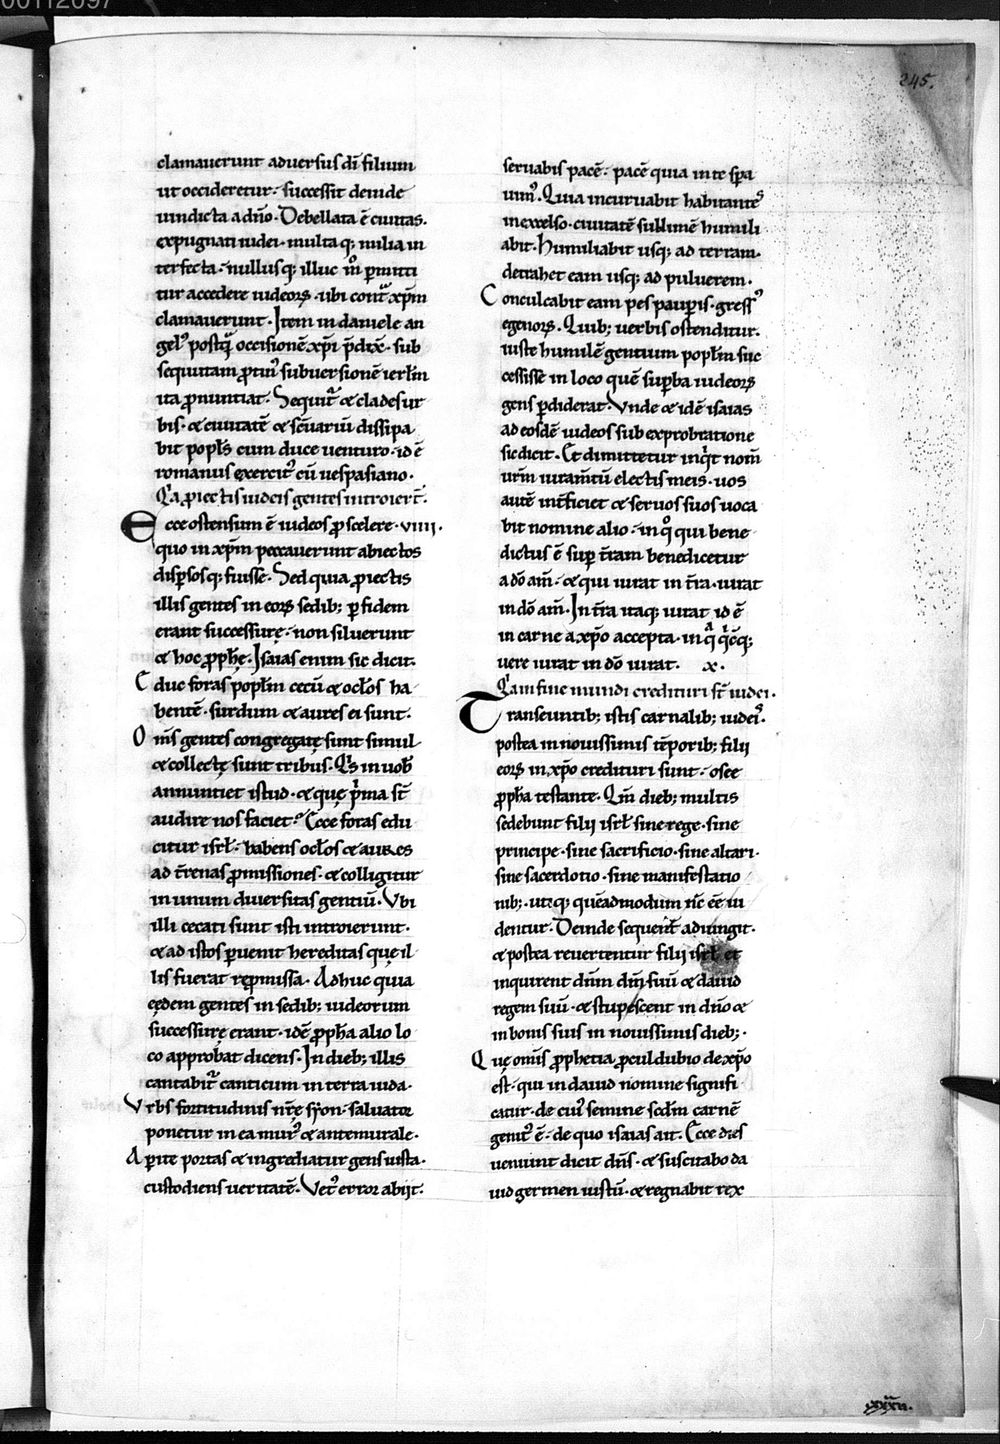 00112097
245.
clamauerunt aduersus dī filium
ut occideretur· successit deinde
uindicta a dn̄o· Debellata ē ciuitas·
expugnati iudei· multaq; milia in
terfecta· nullusq; illuc m̊ p̱mitti
tur accedere iudeoꝝ· ubi cont͛ xp̄m
clamauerunt· Item in daniele an
gel᾽ postq̄ occisionē xp̄i p̄dix̄· sub
sequutam ꝓtin᾽ subuersionē ierl̄m
ita ꝓnuntiat· Sequit͛ & clades ur
bis· & ciuitatē & sc̄uariū dissipa
bit popl̄s cum duce uenturo· id ē
romanus exercit᾽ cū uespasiano·
Q̇a ꝓiectis iudeis gentes introiert̄·
Ecce ostensum ē iudeos ꝓ scelere· viiii·
quo in xp̄m peccauerunt abiectos
disp̱sosq; fuisse· Sed quia ꝓiectis
illis gentes in eoꝝ sedib; p̱ fidem
erant successurę· non siluerunt
& hoc ꝓph̄ę· Isaias enim sic dicit·
Educ foras popl̄m cecū & ocl̄os ha
bentē· surdum & aures ei sunt·
Om̄s gentes congregatę sunt simul
& collectę sunt tribus· Q̇s in uob᾽
annuntiet istud· & quę p̍ma st̄
audire nos faciet? Ecce foras edu
citur isrl̄· habens ocl̄os & aures
ad t̄renas ꝓmissiones· & colligitur
in unum diuersitas gentiū· Vbi
illi cecati sunt isti introierunt·
& ad istos p̱uenit hereditas que il
lis fuerat rep̱missa· Adhuc quia
eędem gentes in sedib; iudeorum
successurę erant· idē ꝓph̄a alio lo
co approbat dicens· In dieb; illis
cantabit͛ canticum in terra iuda·
Vrbs fortitudinis nr̄ę syon· saluator
ponetur in ea mur᾽ & antemurale·
Aperite portas & ingrediatur gens iusta·
custodiens ueritatē· Vet᾽ error abiit·
seruabis pacē· pacē quia in te spa
uim᾽· Quia incuruabit habitantes
in excelso· ciuitatē sublimē humili
abit· Humiliabit usq; ad terram·
detrahet eam usq; ad puluerem·
Conculcabit eam pes paup̱is· gress᾽
egenoꝝ· Quib; uerbis ostenditur·
iuste humilē gentium popl̄m suc
cessisse in loco quē sup̱ba iudeoꝝ
gens p̱diderat· Vnde & idē isaias
ad eosdē iudeos sub exprobratione
sic dicit· Et dimittetur inq̍t nom̄
ur̄m iuram̄tū electis meis· uos
autē int̄ficiet & seruos suos uoca
bit nomine alio· in q̊ qui bene
dictus ē sup̱ t̄ram benedicetur
a dō am̄· & qui iurat in t̄ra· iurat
in dō am̄· In t̄ra itaq; iurat id ē
in carne a xp̄o accepta· in q̄ q̍cūq;
uere iurat in dō iurat· x·
Q̇a in fine mundi credituri st̄ iudei·
Transeuntib; istis carnalib; iudeis·
postea in nouissimis tēporib; filii
eoꝝ in xp̄o credituri sunt· osee
ꝓph̄a testante· Qm̄ dieb; multis
sedebunt filii isrl̄ sine rege· sine
principe· sine sacrificio· sine altari·
sine sacerdotio· sine manifestatio
nib;· utiq; quēadmodum nc̄ eē ui
dentur· Deinde sequent͛ adiungit·
& postea reuertentur filii isrl̄ et
inquirent dn̄m dm̄ suū & dauid
regem suū· & stupescent in dn̄o &
in bonis suis in nouissimis dieb;·
Quę om̄s ꝓphetia ꝓcul dubio de xp̄o
est· qui in dauid nomine signifi
catur· de cui᾽ semine scd̄m carnē
genit᾽ ē· de quo isaias ait· Ecce dies
ueniunt dicit dn̄s· & suscitabo da
uid germen iustū· & regnabit rex